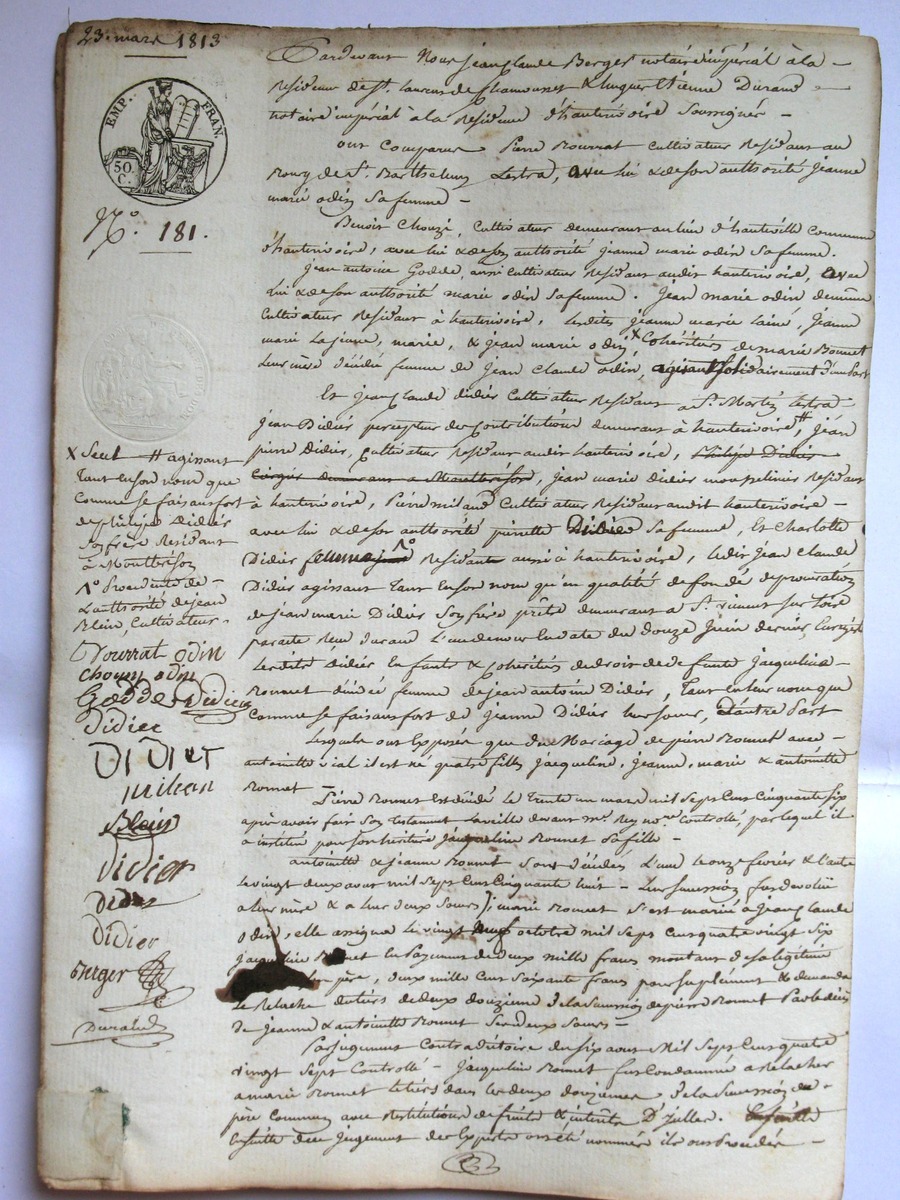 23 mars 1813
EMP. FRAN.
50 C.
N.° 181.
Pardevant Nous jean Claude Berger notaire impérial à la
Residence de St. Laurent de Chamousset & hugues Etienne Durand
notaire impérial à la Residence d'hauterivoire Soussignés
ont Comparus Pierre Bourrat Cultivateur Residant au
Bourg de St. Barthelemy Lestra, avec lui & de son authorité Jeanne
marie odin Sa femme
Benoit Chouzi, Cultivateur demeurant au lieu d'hauteville Commune
d'hauterivoire, avec lui & de son authorité jeanne marie odin Sa femme.
jean antoine Godde, aussi Cultivateur Residant audit hauterivoire, avec
lui & de son authorité marie odin Sa femme. Jean marie odin demeurant
Cultivateur Residant à hauterivoire, Lesdites jeanne marie l'ainé, Jeanne
marie La jeune, marie, & jean marie odin Cohéritiers de marie Ronnet
Leur mere décédée femme de jean Claude odin, agissant Solidairement d'une Part
Et jean Claude didier Cultivateur Residant à St. Martin Lestra
jean Didier percepteur des Contributions demeurant à hauterivoire, # jean
pierre didier, Cultivateur Residant audit hauterivoire, Philippe Didier
demeurant a Montbrison, jean marie didier mousselinier Residant
à hauterivoire, Pierre miland Cultivateur Residant audit hauterivoire
avec lui & de son authorité pierrette Didier Sa femme, Et Charlotte
Didier femme Residante aussi à hauterivoire, ledit jean Claude
Didier agissant Tant en son nom qu'en qualité de fondé de procuration
de jean marie Didier Son frère prêtre demeurant a St.
par acte Reçu Durand L'un de nous En date du douze juin dernier,
Lesdits Didier Enfants & Cohéritiers de droit de defunte jacqueline
Ronnet décédée femme de jean antoine Didier, Tant en leur nom que
Comme se faisant fort de Jeanne Didier leur soeur, d'autre Part
Lesquels ont Exposés que du Mariage de pierre Ronnet avec
antoinette vial il est né quatre filles jacqueline, jeanne, marie & antoinette
Ronnet
Pierre Ronnet est décédé le Trente un mars mil Sept Cent Cinquante Six
après avoir fait Son Testament la veille devant me. Rey nore. Controllé, par lequel il
a institué pour Son héritière jacqueline Ronnet Sa fille
antoinette & jeanne Ronnet Sont décédées L'une le onze fevrier & l'autre
le vingt deux aout mil Sept Cent Cinquante huit Leur Succession fut dévolue
a leur mère & a leur deux Soeurs; marie Ronnet S'est mariée à jean Claude
odin, elle assigna le vingt neuf octobre mil Sept Cent quatre vingt Six
jacqueline Ronnet le Payement de Deux mille francs montant de Sa légitime
père, deux mille Cent Soixante francs pour Suplément & demanda
le Relache du tiers de deux douzieme de la Succession de pierre Ronnet
de jeanne & antoinette Ronnet Ses deux Soeurs
Par jugement Contradictoire du Six aout Mil Sept Cent quatre
vingt Sept Controllé jacqueline Ronnet fut Condamnée a Relacher
a marie Ronnet le tiers dans les deux douziemes de la Succession du
père Commun avec Restitution de fruits & intérêts
Ensuitte de ce jugement des Experts ont été nommés ils ont Procédé
X Seul # agissant
Tant en son nom que
Comme se faisant fort
de philippe Didier
Son frère Residant
à Montbrison
Procédante de
L'authorité de jean
Blein, Cultivateur
Bourrat odin
chouzy odin
Godde Didier
Didier
DIDIER
milean
Blein
Didier
Didier
Didier
Berger
Durand